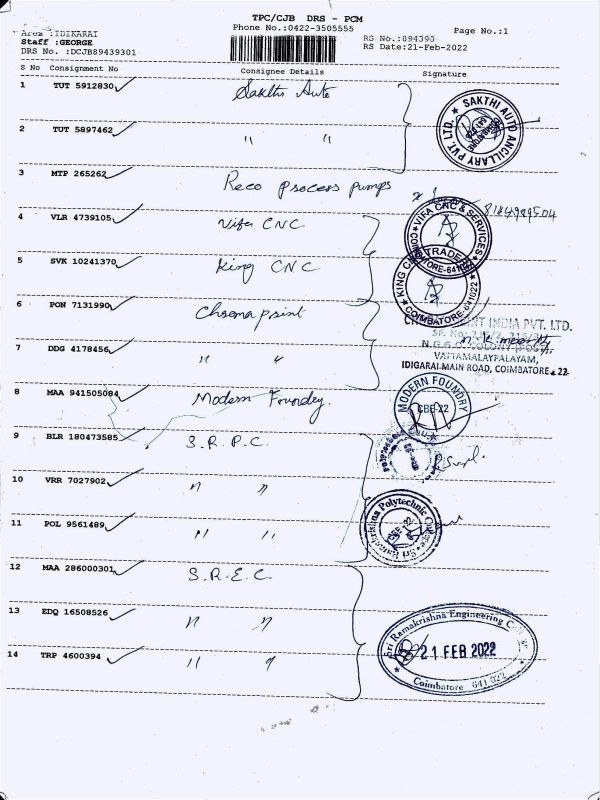 TPC/CJB DRS - PCM
Phone No.:0422-3505555
Page No.:1
Area :IDIKARAI
Staff :GEORGE
DRS No. :DCJB89439301
RS No.:894393
RS Date:21-Feb-2022
S No Consignment No Consignee Details Signature
1 TUT 5912830 Sakthi Auto
SAKTHI AUTO ANCILLARY PVT. LTD.
2 TUT 5897462 " "
3 MTP 265262 Reco process pumps
4 VLR 4739105 Vifa CNC
VIFA CNC & SERVICES
5 SVK 10241370 King CNC
KING CNC TRADE
COIMBATORE-641022
6 PON 7131990 Chromaprint
INDIA PVT. LTD.
7 DDG 4178456 " "
VATTAMALAYPALAYAM,
IDIGARAI MAIN ROAD, COIMBATORE - 22
8 MAA 941505084 Modern Foundry
MODERN FOUNDRY
CBE-22
9 BLR 180473585 S.R.P.C.
10 VRR 7027902 " "
Sri Ramakrishna Polytechnic College
CBE-22
11 POL 9561489 " "
12 MAA 286000301 S.R.E.C.
13 EDQ 16508526 " "
Sri Ramakrishna Engineering
14 TRP 4600394 " "
21 FEB 2022
Coimbatore 641 022